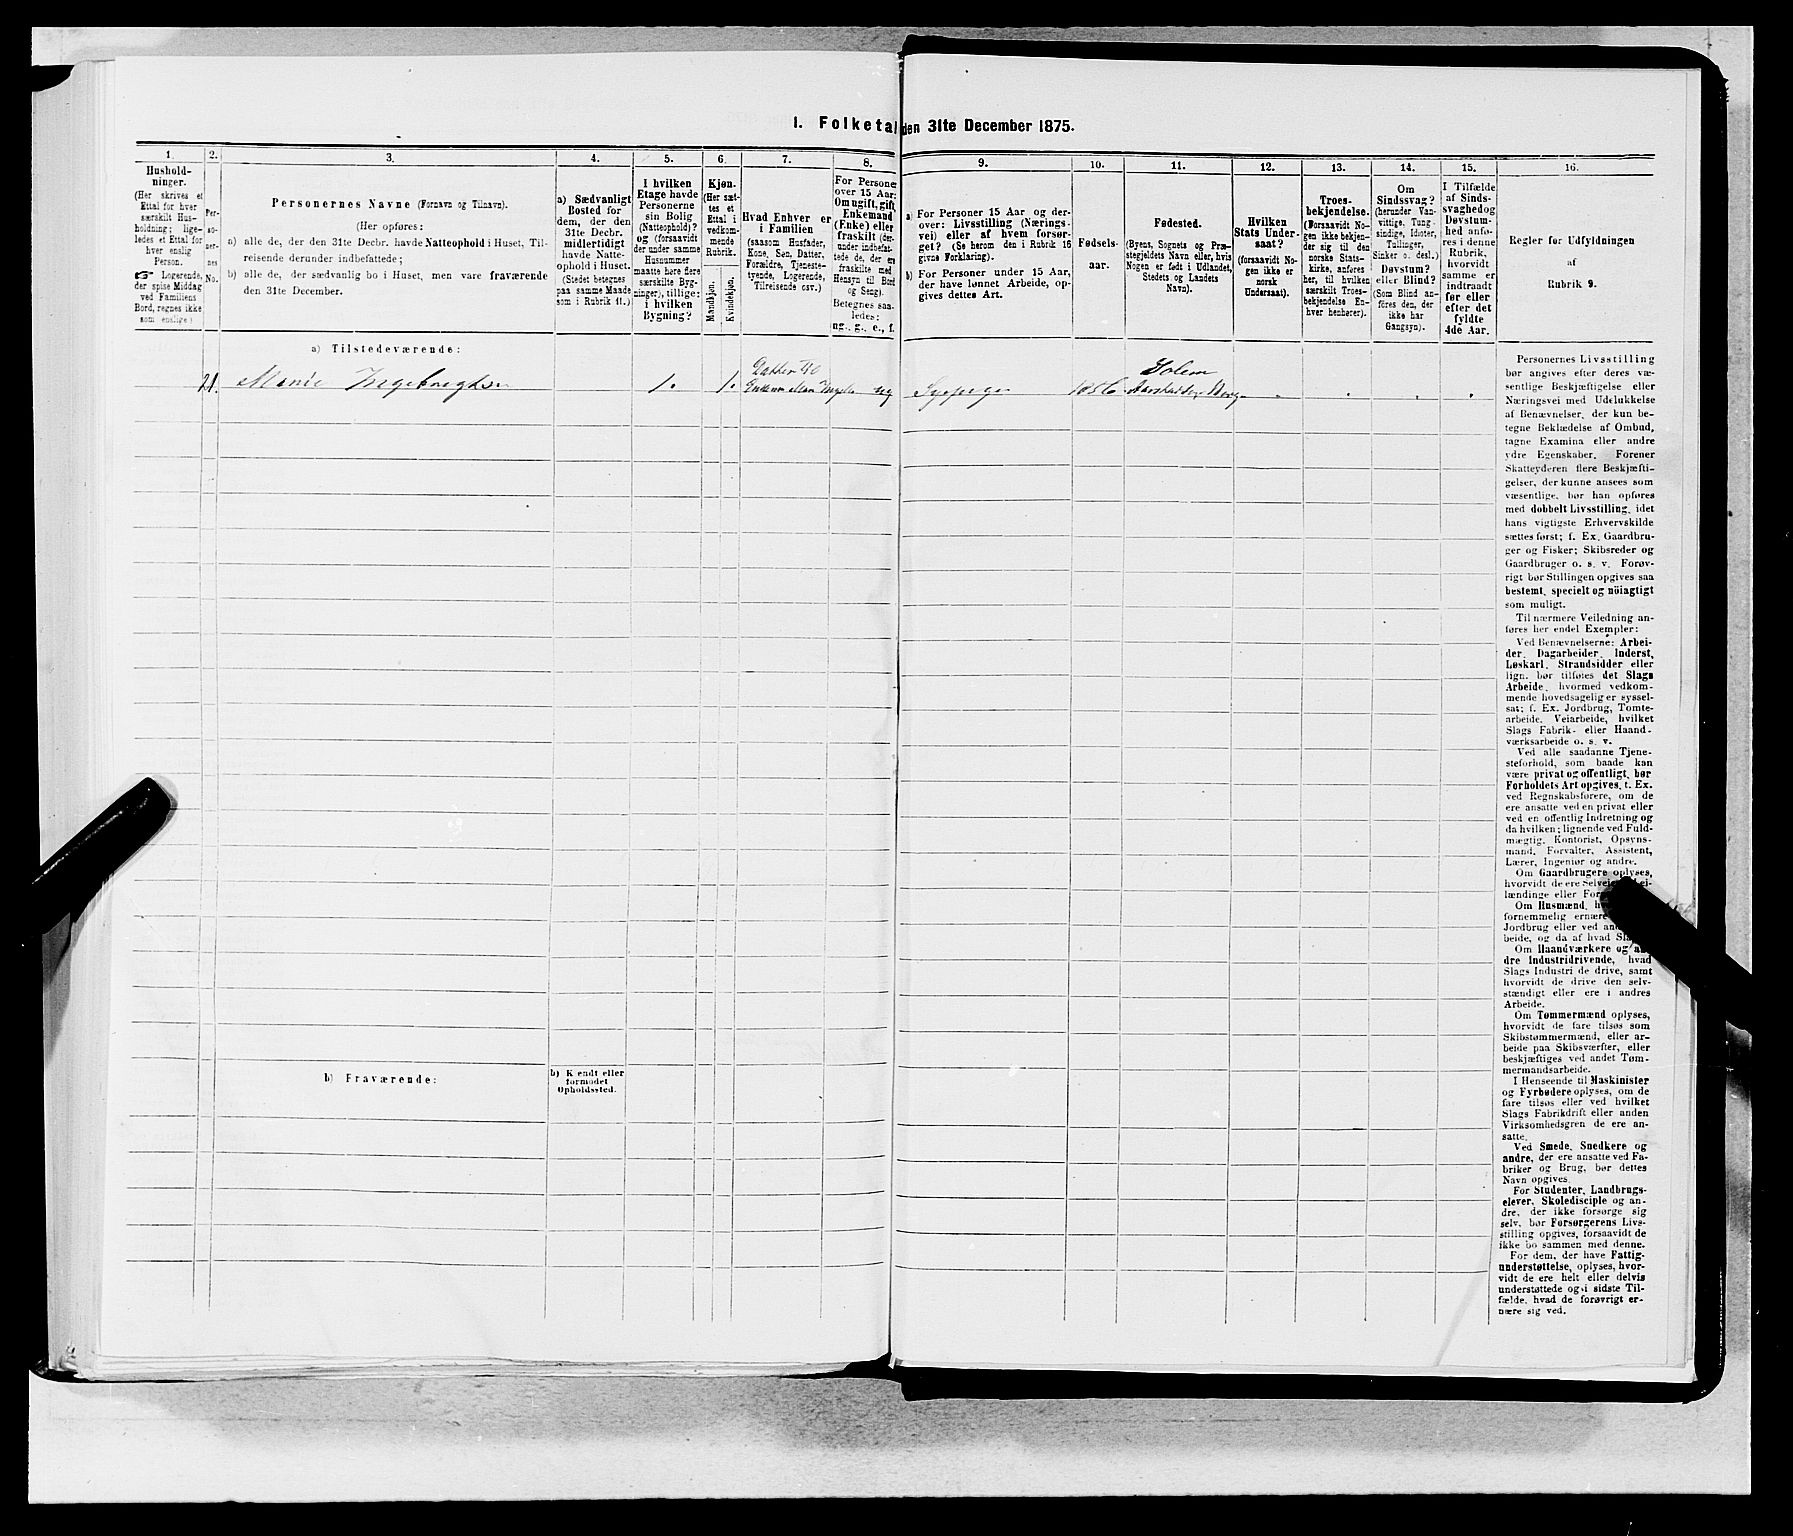 I. Folketal den 31te December 1875.
1.
2.
3.
4.
5.
6.
7.
8.
9.
10.
11.
12.
13.
14.
15.
16.
Hushold-
ninger.
(Her skrives et
Ettal for hver
særskilt Hus-
holdning; lige-
ledes et Ettal for
hver enslig
Person.
☞ Logerende,
der spise Middag
ved Familiens
Bord, regnes ikke
som enslige.)
Per-
so-
ner-
nes
No.
Personernes Navne (Fornavn og Tilnavn).
(Her opføres:
a) alle de, der den 31te Decbr. havde Natteophold i Huset, Til-
reisende derunder indbefattede;
b) alle de, der sædvanlig bo i Huset, men vare fraværende
den 31te December.
a) Sædvanligt
Bosted for
dem, der den
31te Decbr.
midlertidigt
havde Natte-
ophold i Huset.
(Stedet betegnes
paa samme Maade
som i Rubrik 11.)
I hvilken
Etage havde
Personerne
sin Bolig
(Natteophold)?
og (forsaavidt
der under samme
Husnummer
maatte høre flere
særskilte Byg-
ninger), tillige:
i hvilken
Bygning?
Kjøn.
(Her sæt-
tes et
Ettal i
vedkom-
mende
Rubrik.
Mandkjøn.
Kvindekjøn.
Hvad Enhver er
i Familien
(saasom Husfader,
Kone, Søn, Datter,
Forældre, Tjeneste-
tyende, Logerende,
Tilreisende osv.).
For Personer
over 15 Aar:
Om ugift, gift,
Enkemand
(Enke) eller
fraskilt (der-
under indbefat-
tede de, der ere
fraskilte med
Hensyn til Bord
og Seng).
Betegnes saa-
ledes:
ug., g., e., f.
a) For Personer 15 Aar og der-
over: Livsstilling (Nærings-
vei) eller af hvem forsør-
get? (Se herom den i Rubrik 16
givne Forklaring).
b) For Personer under 15 Aar,
der have lønnet Arbeide, op-
gives dettes Art.
Fødsels-
aar.
Fødested.
(Byens, Sognets og Præ-
stegjeldets Navn eller, hvis
Nogen er født i Udlandet,
Stedets og Landets
Navn).
Hvilken
Stats Under-
saat?
(forsaavidt No-
gen ikke er
norsk
Undersaat).
Troes-
bekjendelse.
(Forsaavidt No-
gen ikke bekjen-
der sig til den
norske Stats-
kirke, anføres
her, til hvilken
særskilt Troes-
bekjendelse En-
hver henhører).
Om
Sindssvag?
(herunder Van-
vittige, Tung-
sindige, Idioter,
Tullinger,
Sinker o. desl.)
Døvstum?
eller Blind?
(Som Blind an-
føres den, der
ikke har
Gangsyn).
I Tilfælde
af Sinds-
svaghed og
Døvstum-
hed anfø-
res i denne
Rubrik,
hvorvidt
samme er
indtraadt
før eller
efter det
fyldte
4de Aar.
Regler for Udfyldningen
af
Rubrik 9.
a) Tilstedeværende:
21. Marie 1. 1. Datter til ug Sypige 1856
b) Fraværende:
b) Kjendt eller
formodet
Opholdssted.
Personernes Livsstilling
bør angives efter deres væ-
sentlige Beskjæftigelse eller
Næringsvei med Udelukkelse
af Benævnelser, der kun be-
tegne Beklædelse af Ombud,
tagne Examina eller andre
ydre Egenskaber. Forener
Skatteyderen flere Beskjæfti-
gelser, der kunne ansees som
væsentlige, bør han opføres
med dobbelt Livsstilling, idet
hans vigtigste Erhvervskilde
sættes først; f. Ex. Gaardbru-
ger og Fisker; Skibsreder og
Gaardbruger o. s. v. Forøv-
rigt bør Stillingen opgives saa
bestemt, specielt og nöiagtigt
som muligt.
Til nærmere Veiledning an-
føres her endel Exempler:
Ved Benævnelserne: Arbei-
der, Dagarbeider, Inderst,
Løskarl, Strandsidder eller
lign. bør tilføies det Slags
Arbeide, hvormed vedkom-
mende hovedsagelig er syssel-
sat; f. Ex. Jordbrug, Tomte-
arbeide, Veiarbeide, hvilket
Slags Fabrik- eller Haand-
værksarbeide o. s. v.
Ved alle saadanne Tjene-
steforhold, som baade kan
være privat og offentligt, bør
Forholdets Art opgives, t. Ex.
ved Regnskabsførere, om de
ere ansatte ved en privat eller
ved en offentlig Indretning og
da hvilken; lignende ved Fuld-
mægtig, Kontorist, Opsyns-
mand, Forvalter, Assistent,
Lærer, Ingeniør og andre.
Om Gaardbrugere oplyses,
hvorvidt de ere
lændinge eller
Om Husmænd,
fornemmelig
Jordbrug eller ved
beide, og da af hvad
Om Haandværkere og an-
dre Industridrivende, hvad
Slags Industri de drive, samt
hvorvidt de drive den selv-
stændigt eller ere i andres
Arbeide.
Om Tømmermænd oplyses,
hvorvidt de fare tilsøs som
Skibstømmermænd, eller ar-
beide paa Skibsværfter, eller
beskjæftiges ved andet Tøm-
mermandsarbeide.
I Henseende til Maskinister
og Fyrbødere oplyses, om de
fare tilsøs eller ved hvilket
Slags Fabrikdrift eller anden
Virksomhedsgren de ere an-
satte.
Ved Smede, Snedkere og
andre, der ere ansatte ved Fa-
briker og Brug, bør dettes
Navn opgives.
For Studenter, Landbrugs-
elever, Skoledisciple og an-
dre, der ikke forsørge sig
selv, bør Forsørgerens Livs-
stilling opgives, forsaavidt de
ikke bo sammen med denne.
For dem, der have Fattig-
understøttelse, oplyses, hvor-
vidt de ere helt eller delvis
understøttede og i sidste Til-
fælde, hvad de forøvrigt er-
nære sig ved.